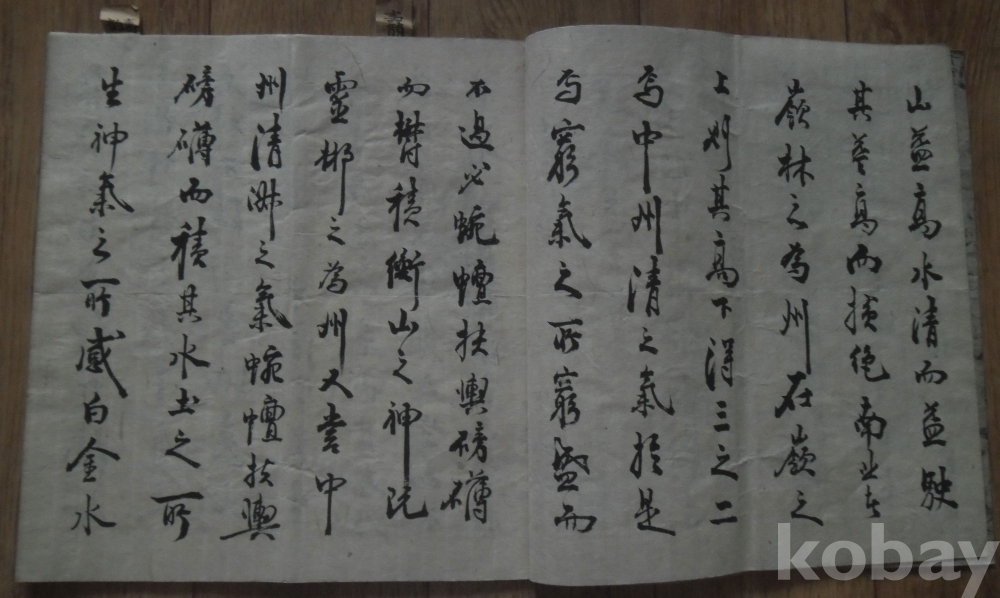 山益高水清而益駛
其最高而橫絶南北者
嶺林之為州在嶺之
上測其高下得三之二
焉中州清之氣於是
焉窮氣之所窮盛而
不過必蜿蟺扶輿磅礴
而鬱積衡山之神既
靈郴之為州又當中
州清淑之氣蜿蟺扶輿
磅礴而積其水土之所
生神氣之所感白金水
kobay